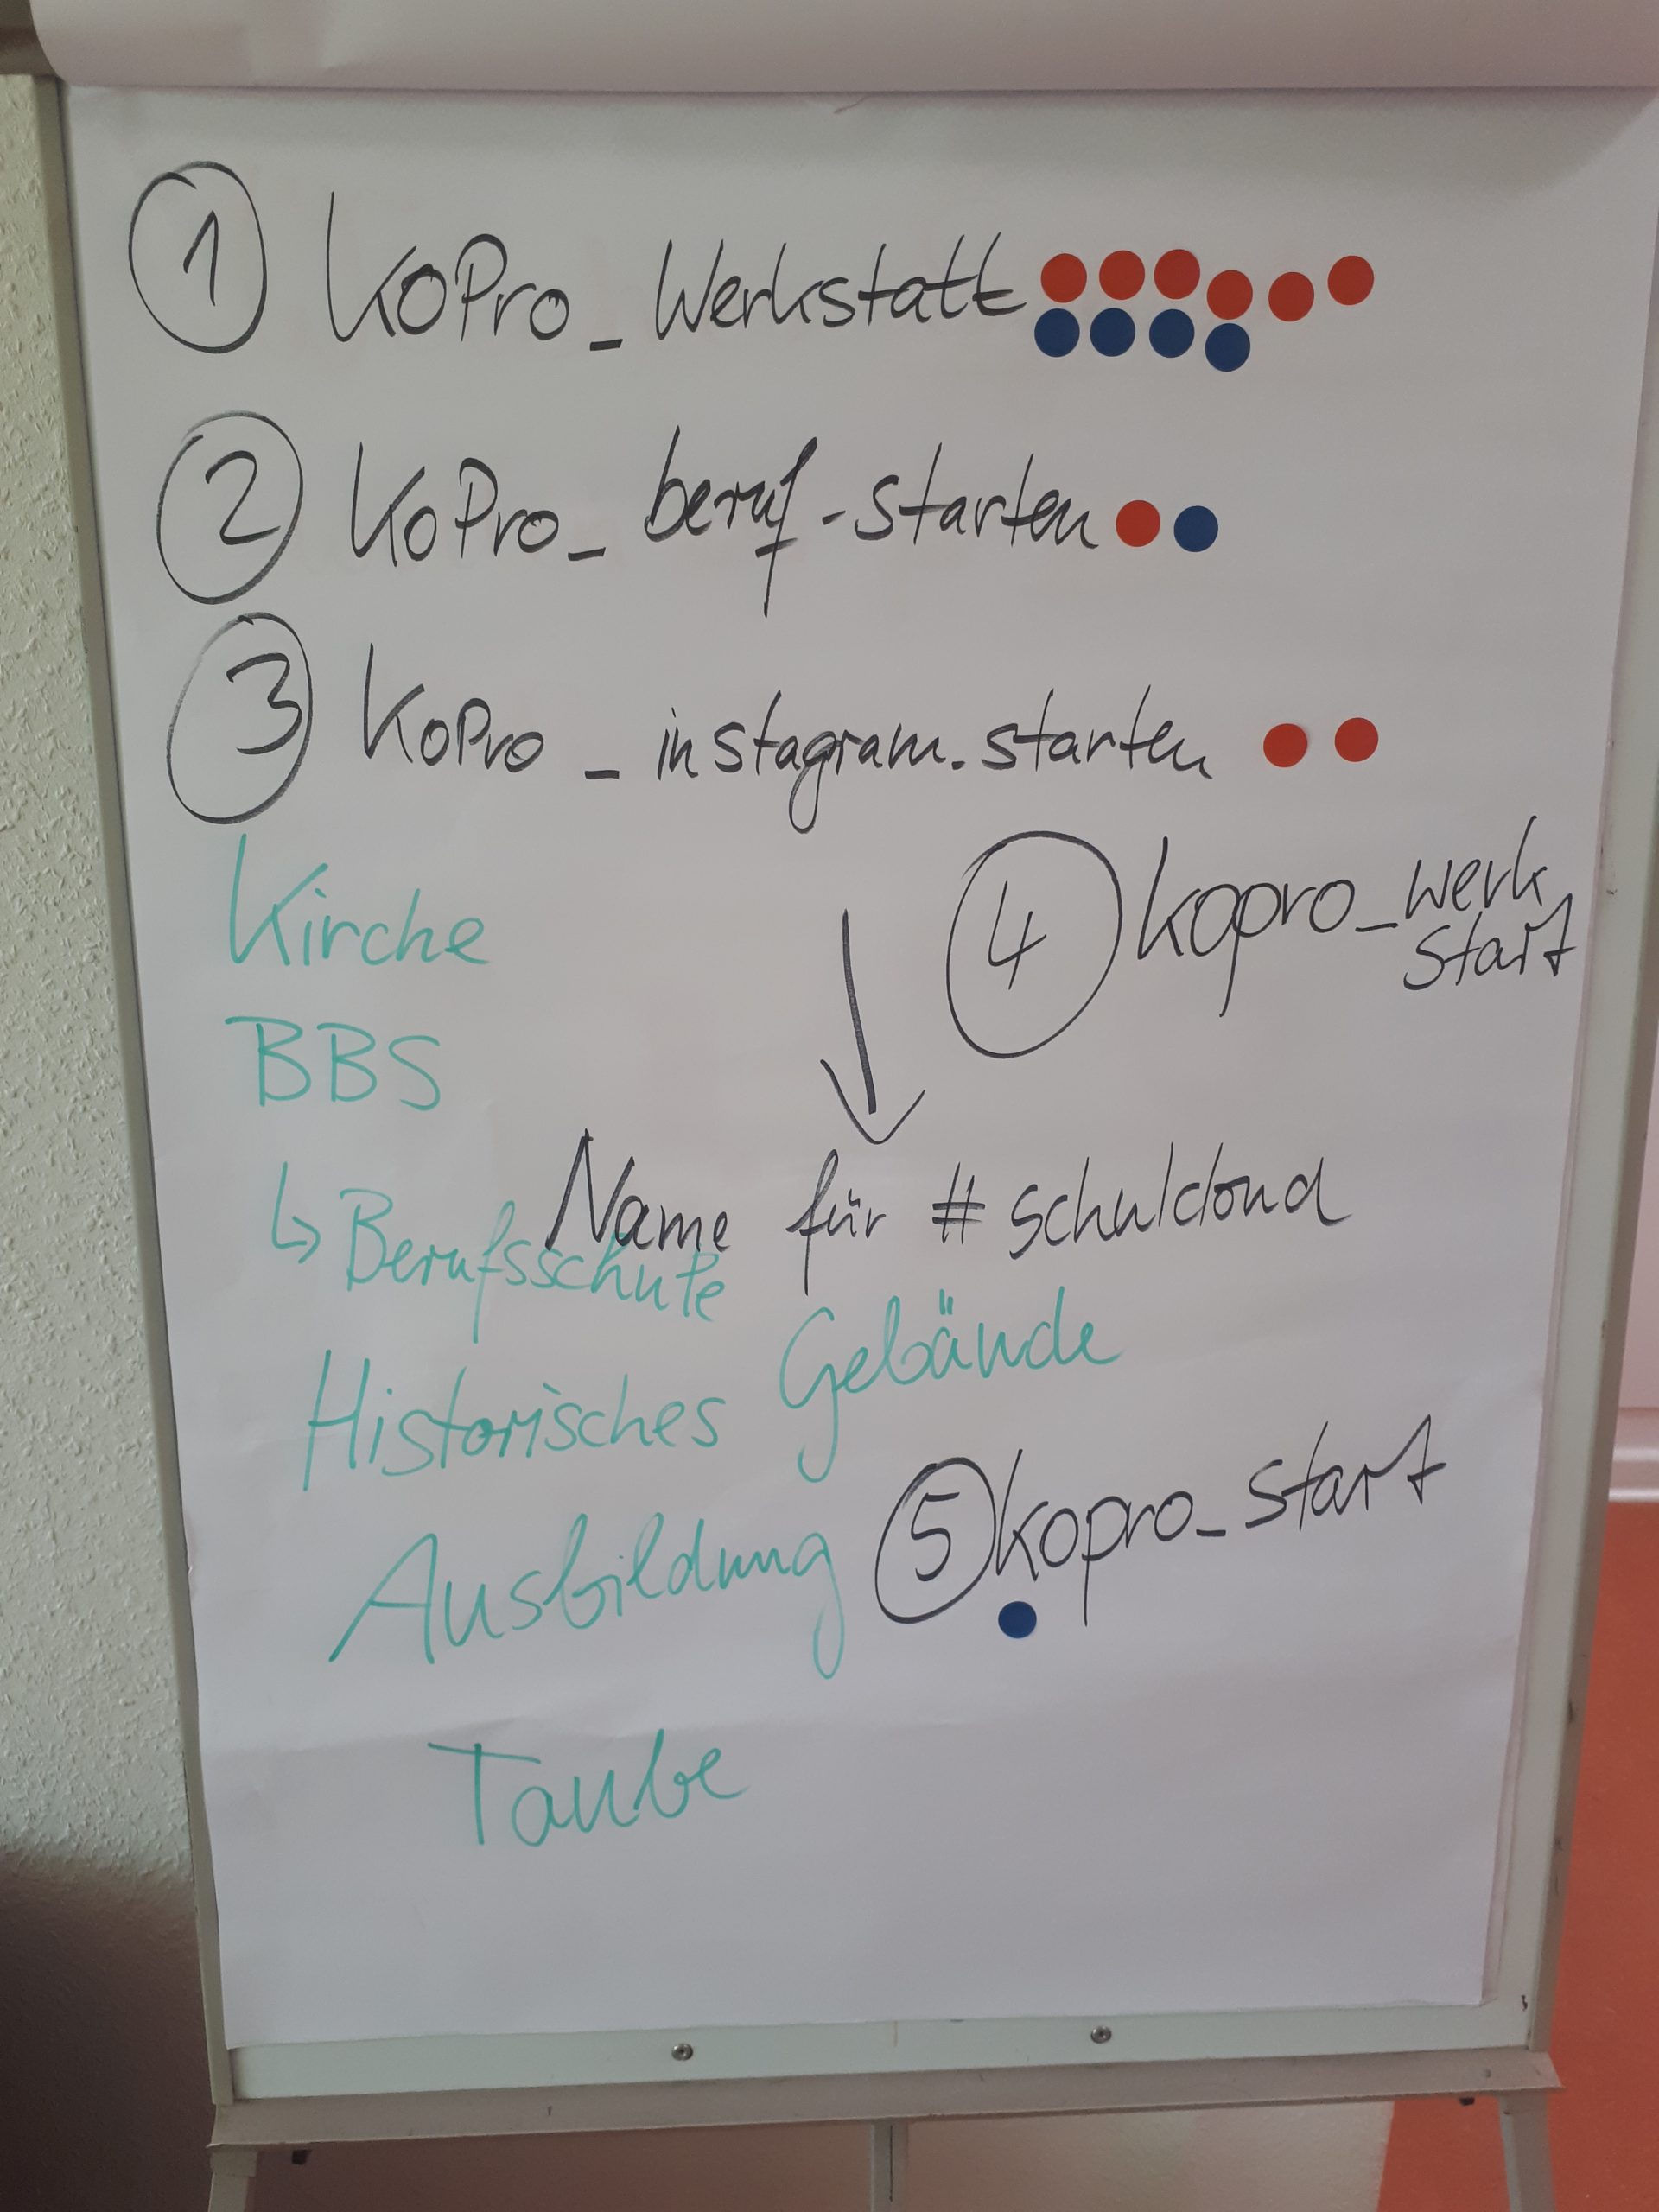 1 KoPro_Werkstatt
2 KoPro_beruf-starten
3 KoPro_instagram.starten
4 kopro_werk
start
Kirche
BBS
Name für #schulcloud
↳ Berufsschule
Historisches Gebäude
5 kopro_start
Ausbildung
Taube